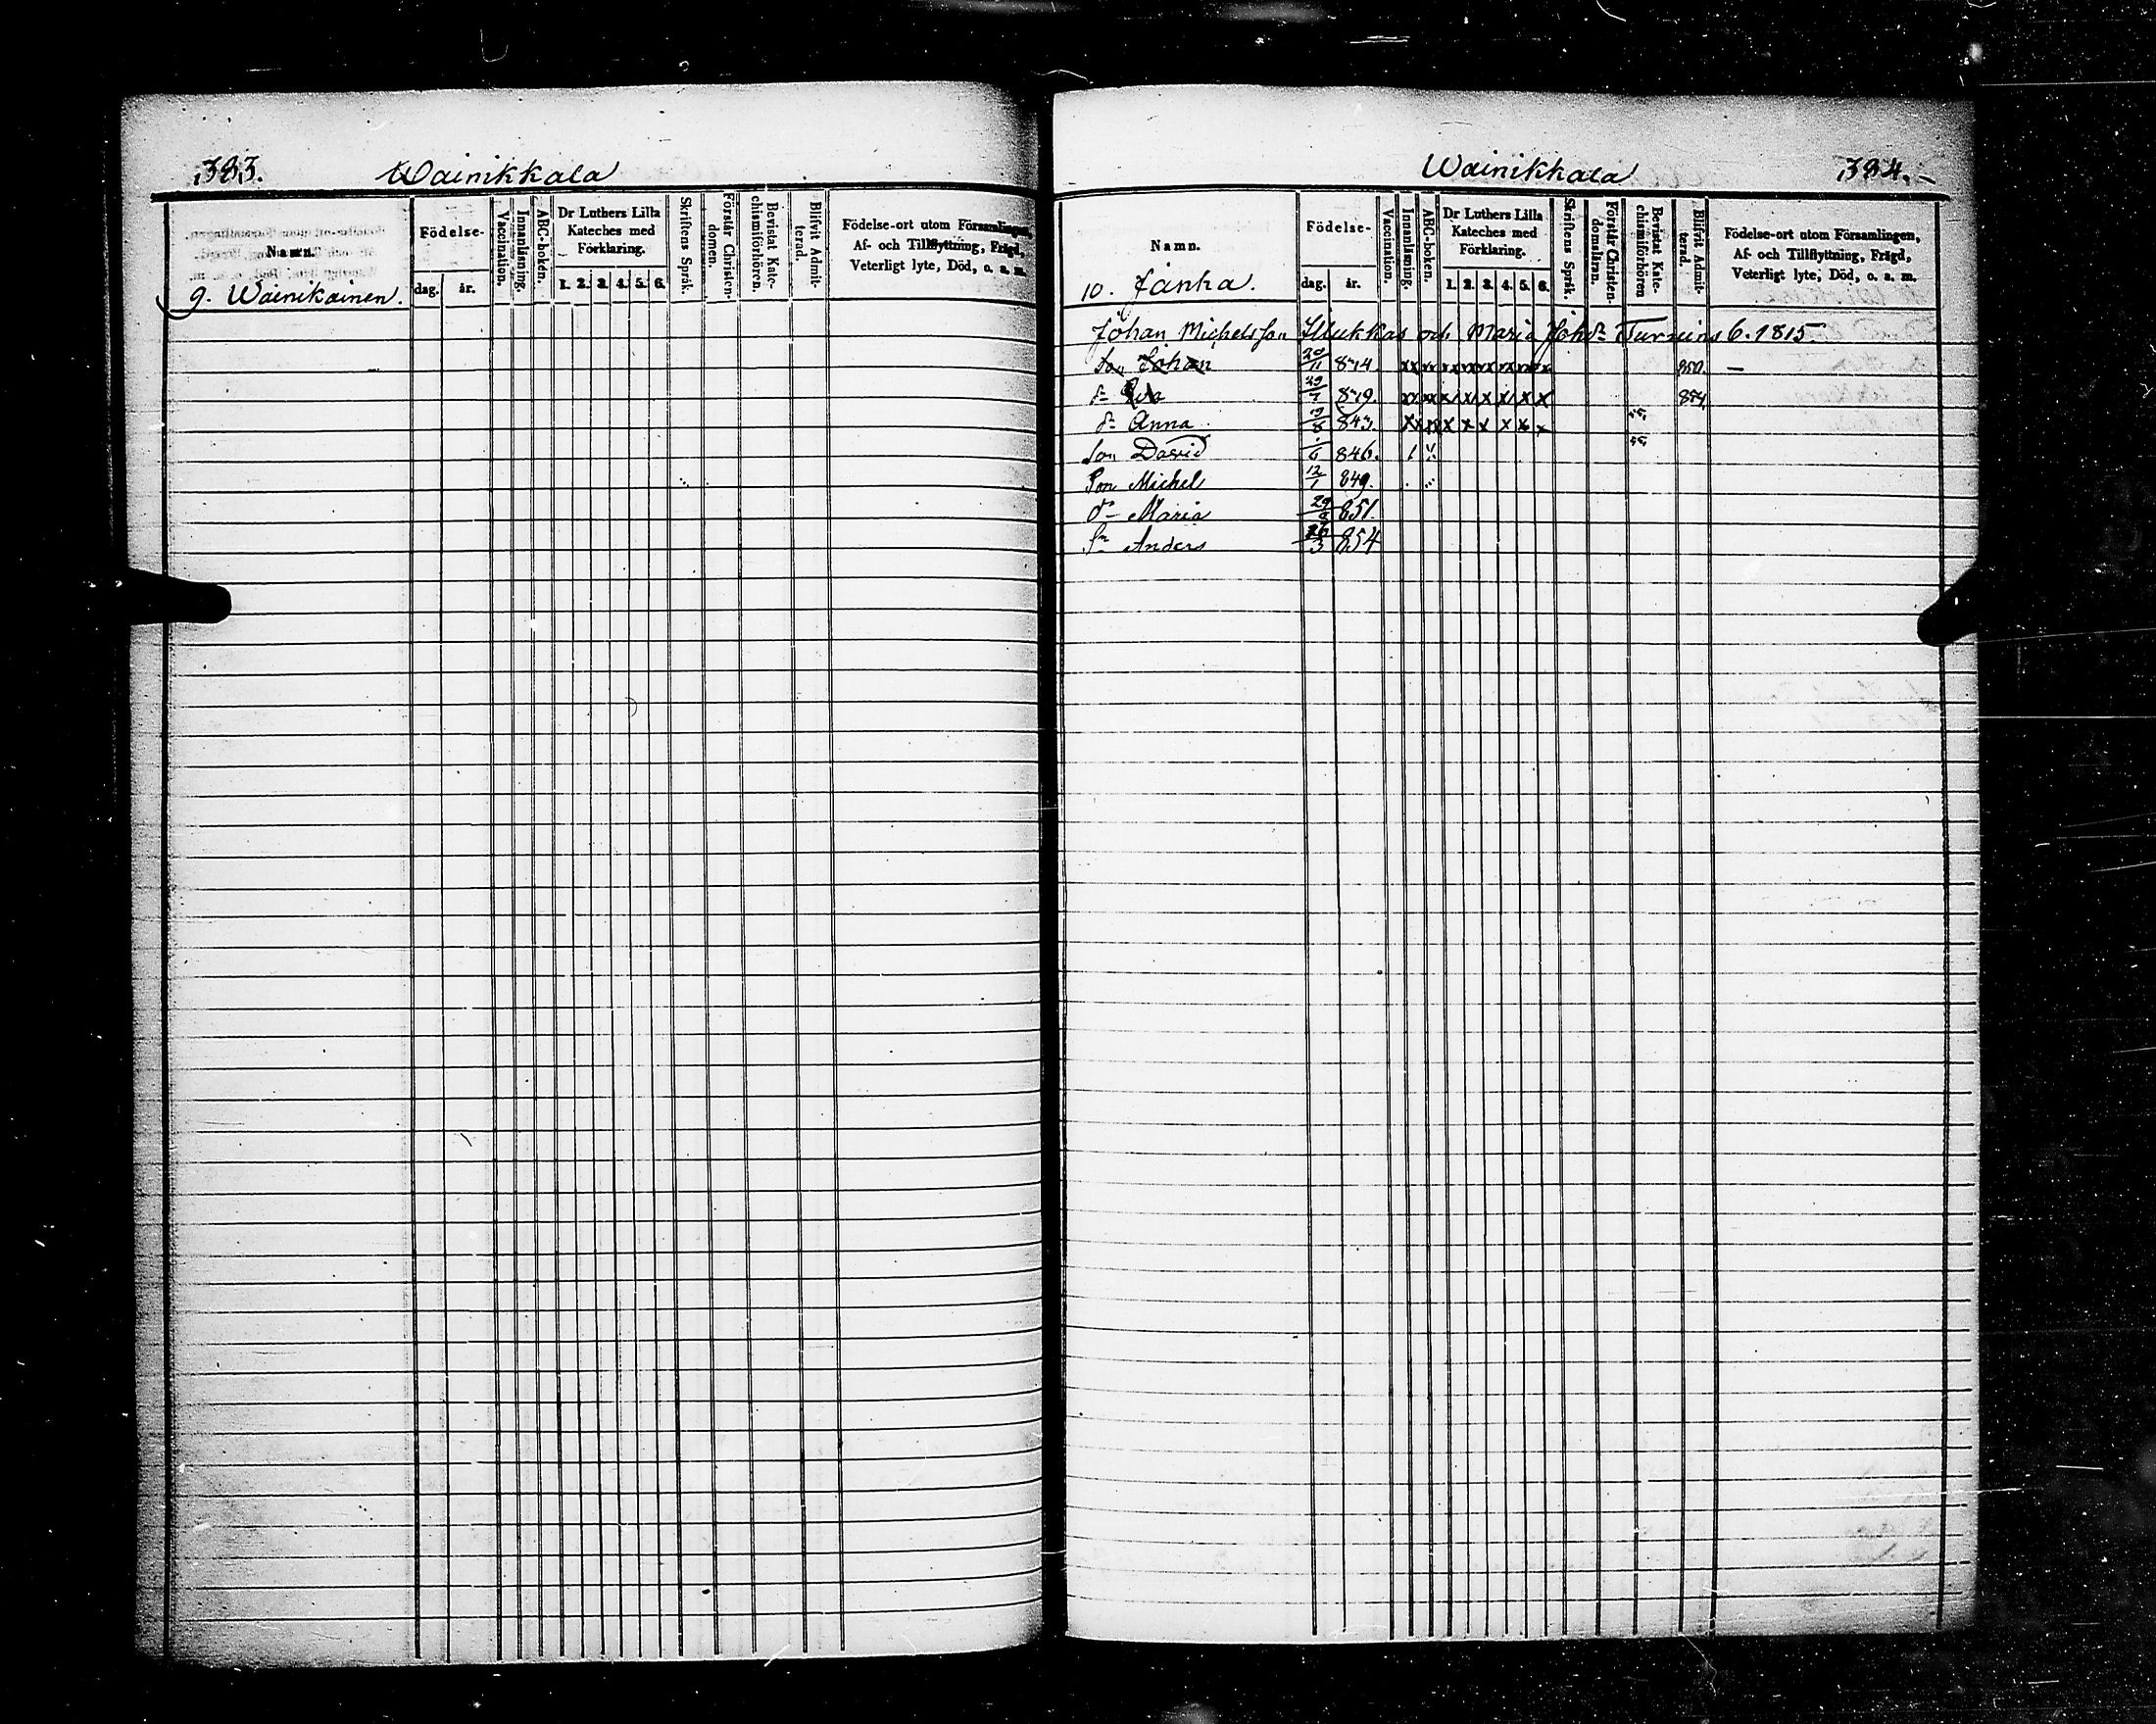 383. Wainikkala
Namn.
Födelse-
dag. år.
Vaccination.
Innanläsning.
ABC-boken.
Dr Luthers Lilla
Kateches med
Förklaring.
1. 2. 3. 4. 5. 6.
Skriftens Språk.
Förstår Christen-
domen.
Bevistat Kate-
chismiförhören.
Blifvit Admit-
terad.
Födelse-ort utom Församlingen,
Af- och Tillflyttning, Frägd,
Veterligt lyte, Död, o. s. m.
9. Wainikainen.
Wainikkala 384.
Namn.
Födelse-
dag. år.
Vaccination.
Innanläsning.
ABC-boken.
Dr Luthers Lilla
Kateches med
Förklaring.
1. 2. 3. 4. 5. 6.
Skriftens Språk.
Förstår Christen-
domsläran.
Bevistat Kate-
chismiförhören
Blifvit Admit-
terad.
Födelse-ort utom Församlingen,
Af- och Tillflyttning, Frägd,
Veterligt lyte, Död, o. s. m.
10. Janka.
Johan Michelsson och Maria 1815
Son Johan 20/11 x x x x x x x x 850. —
dr x x x x x x x x 854
dr Anna 19/8 843. x x x x x x x x 55
Son David 846. 55
Son Michel 12/1 849.
dr Maria 851.
Sn Anders 26/3 854